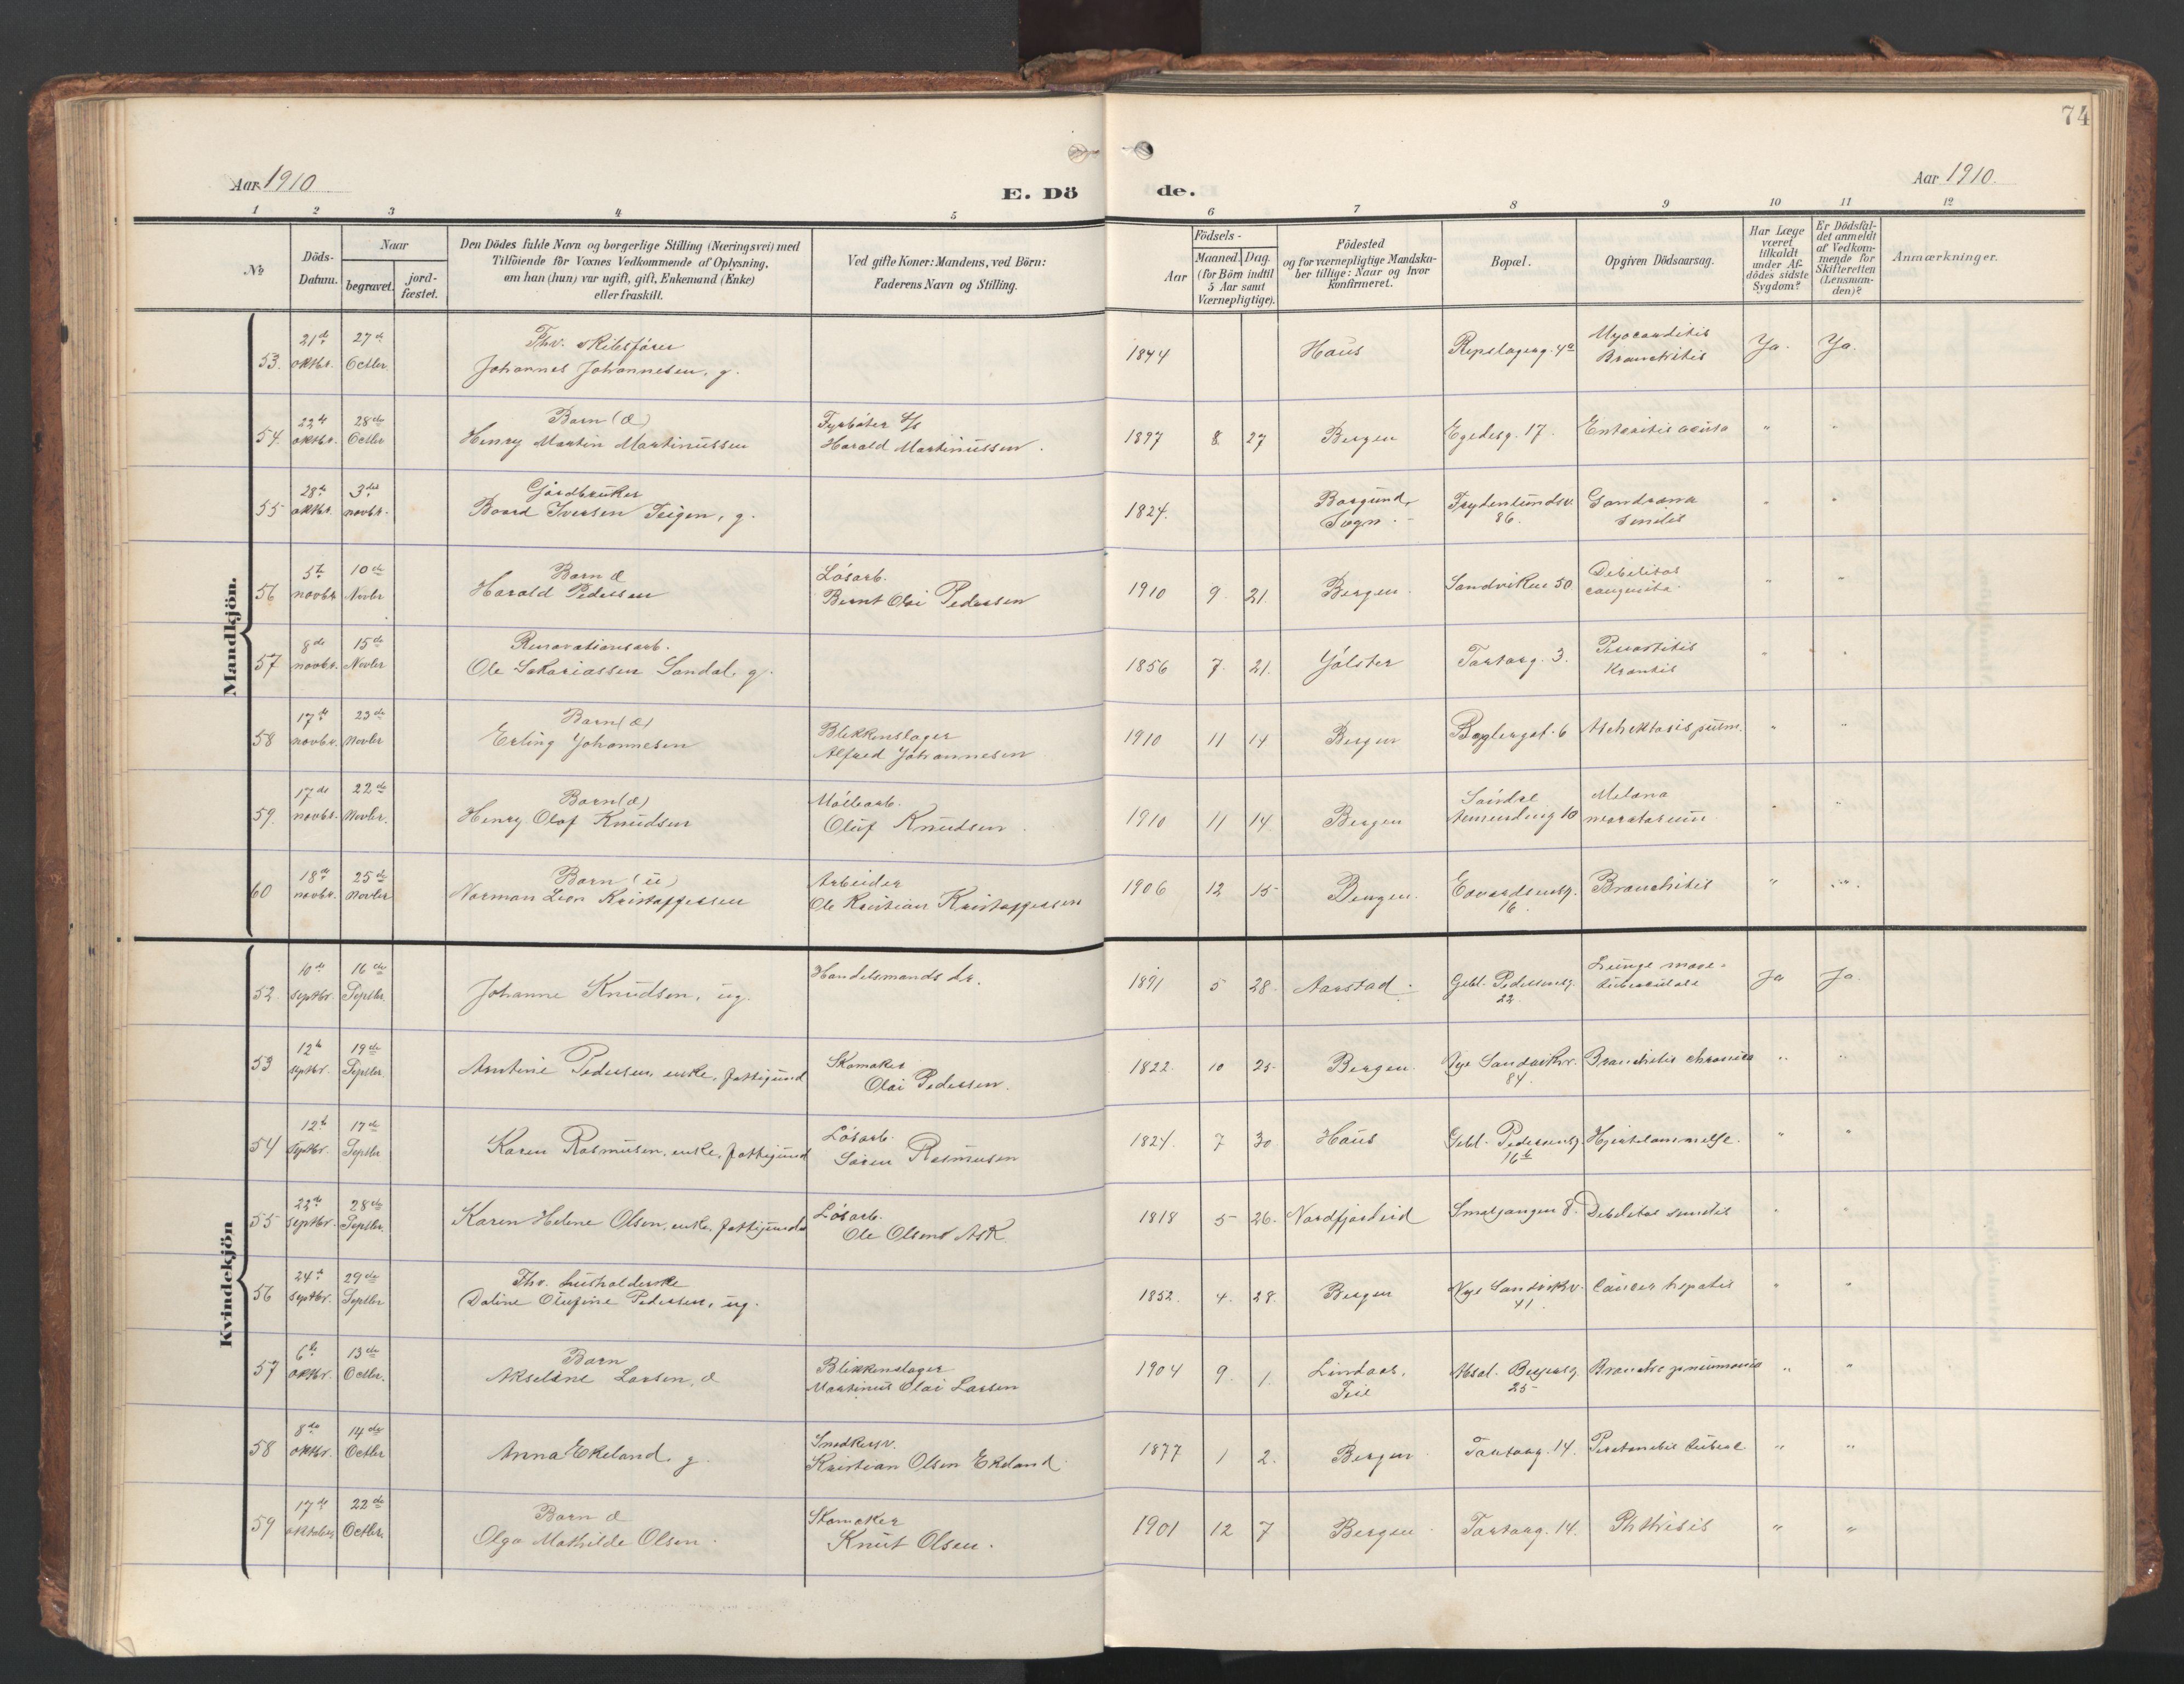 74
Aar 1910
E. Dö
de.
Aar 1910.
1 2 3 4 5 6 7 8 9 10 11 12
No
Döds-
Datum.
Naar
begravet.
jord-
fæstet.
Den Dödes fulde Navn og borgerlige Stilling (Næringsvei) med
Tilföiende för Voxnes Vedkommende af Oplysning,
om han (hun) var ugift, gift, Enkemand (Enke)
eller fraskilt.
Ved gifte Koner: Mandens, ved Börn:
Faderens Navn og Stilling.
Födsels-
Aar
Maaned.
Dag.
(for Börn indtil
5 Aar samt
Værnepligtige).
Födested
og for værnepligtige Mandska-
ber tillige: Naar og hvor
konfirmeret.
Bopæl.
Opgiven Dödsaarsag.
Har Læge
været
tilkaldt
under Af-
dödes sidste
Sygdom?
Er Dödsfal-
det anmeldt
af Vedkom-
mende for
Skifteretten
(Lensman-
den)?
Anmærkninger.
Mandkjön.
21de 27de Fhv. skibsfører Myocarditis
53. oktbr. Octbr. Johannes Johannesen, g. 1844 Haus Repslagerg. 4a Bronchitis Ja. Ja.
22de 28de Barn (æ) Fyrbøter d/s
54. oktbr. Octbr Henry Martin Martinussen Harald Martinussen. 1897 8 27 Bergen Egedesg. 17. Enteritis acuta " "
28de 3die Gårdbruker Borgund, Frydenlundsv. Gangræna
55 oktbr. novbr. Baard Iversen Teigen, g. 1824. Sogn. 86. senilis " "
5te 10de Barn æ Løsarb. Debilitas
56 novbr Novbr Harald Pedersen Bernt Olai Pedersen 1910 9 21 Bergen. Sandviken 50 congenita " "
8de 15de Renovationsarb.
57 novbr. Novbr Ole Sakariassen Sandal, g. 1856 7. 21. Jölster Tartarg. 3. " "
17de 23de Barn (æ) Blikkenslager
58 novbr. Novbr Erling Johannesen Alfred Johannesen 1910 11 14 Bergen Baglergat. 6 Atelektasis pulm. " "
17de 22de Barn (æ) Møllearb. Söndre Melæna
59. novbr. Novbr. Henry Olaf Knudsen Oluf Knudsen. 1910 11 14 Bergen 10 neonatorum " "
18de 25de Barn (u) Arbeider
60 novbr. Novbr Norman Leon Kristoffersen Ole Kristian Kristoffersen 1906 12 15 Bergen. Edvardsensg. 16. Bronchitis " "
Kvindekjön
10de 16de Handelsmands dr. Gebl. Pedersensg. Lunge mave-
52. septbr. Septbr. Johanne Knudsen, ug. 1891 5 28 Aarstad. 22. tuberculose Ja Ja.
12te 19de Skomaker Nye Sandviksv.
53 septbr. Septbr. Antine Pedersen, enke, fattigund Olai Pedersen. 1822. 10 25 Bergen. 84. Bronchitis chronica " "
12te 17de Løsarb. Gebl. Pedersensg.
54 septbr. Septbr Karen Rasmusen, enke, fattigund Søren Rasmusen 1824. 7 30 Haus 16b Hjertelammelse. " "
22de 28de Løsarb.
55 septbr. Septbr. Karen Helene Olsen, enke, fattigund Ole Olsens Ask 1818 5 26. Nordfjordeid Smalgangen 8. Debilitas senilis " "
24de 29de Fhv. husholderske Nye Sandviksv.
56 septbr. Septbr Daline Olufine Pedersen, ug. 1852. 4. 28. Bergen 41. Cancer hepatis " "
6te 13de Barn Blikkenslager Lindaas, Absal. Beyersg.
57 oktbr. Octbr. Akseline Larsen, æ Martinus Olai Larsen 1904 9. 1. 25 Broncho pneumonia " "
8de 14de Snedkersv.
58 oktbr. Octbr Anna Ekeland, g. Kristian Olsen Ekeland. 1877 1 2. Bergen Tartarg. 14. Peritonitis tuberc. " "
17de 22de Barn æ Skomaker
59 oktober Octbr. Olga Mathilde Olsen. Knut Olsen. 1901 12 7 Bergen. Tartarg. 14. Phthisis " "